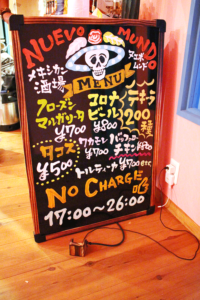 NUEVO MUNDO
メキシカン
酒場
ヌエボ
ムンド
MENU
フローズン
マルガリータ
¥700
コロナ
ビール
¥800
テキーラ
200
種
タコス
¥500
ワカモレ
¥700
バッファロー
チキン
トルティーヤ
¥700
NO CHARGE
17:00~26:00